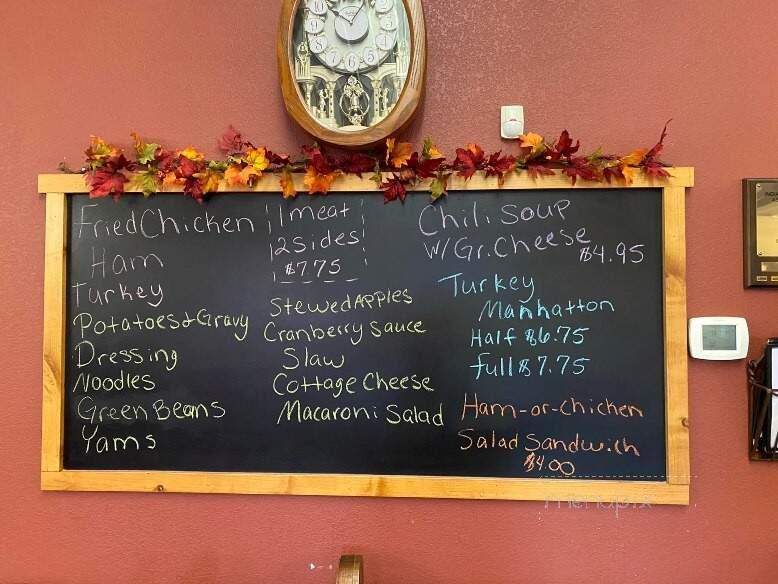 Fried Chicken
Ham
Turkey
Potatoes & Gravy
Dressing
Noodles
Green Beans
Yams
1 meat
2 Sides
$7.75
Stewed Apples
Cranberry Sauce
Slaw
Cottage Cheese
Macaroni Salad
Chili Soup
W/Gr. Cheese $4.95
Turkey
Manhatton
Half $6.75
full $7.75
Ham-or-Chicken
Salad Sandwich
$4.00
menupix